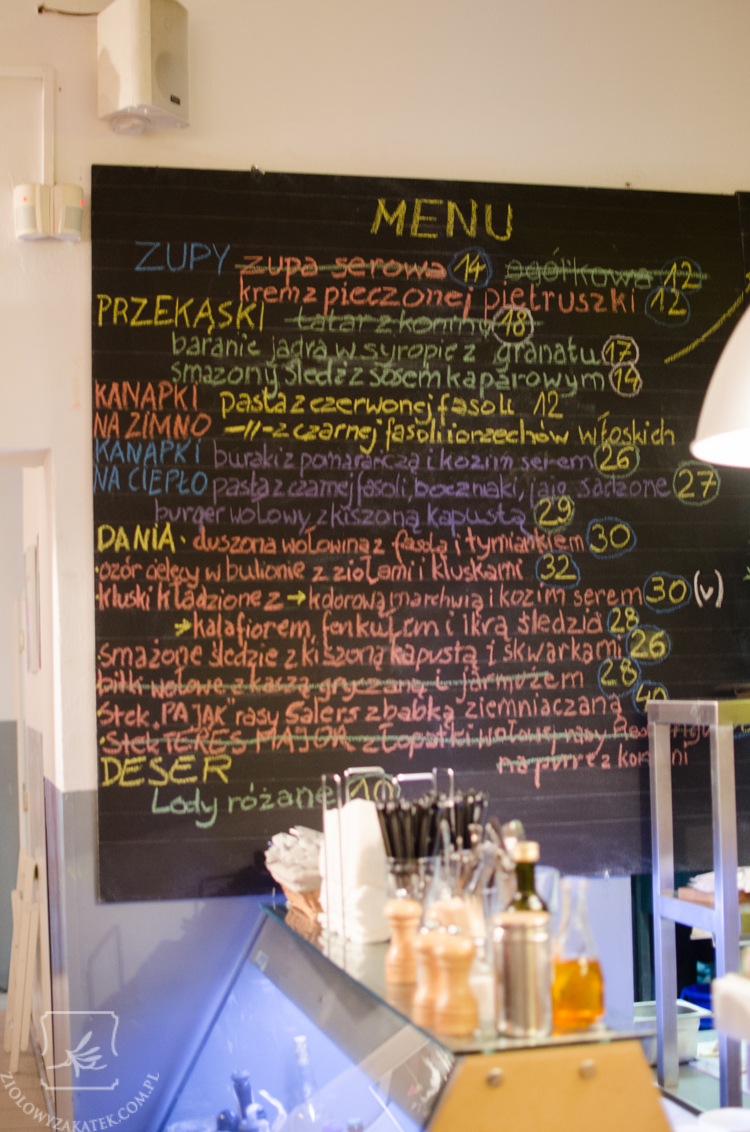 MENU
ZUPY zupa serowa 14 ogórkowa 12
krem z pieczonej pietruszki 12
PRZEKĄSKI tatar z koniny 18
baranie jądra w syropie z granatu 17
smażony śledź z sosem kaparowym 14
KANAPKI NA ZIMNO pasta z czerwonej fasoli 12
-//- z czarnej fasoli i orzechów włoskich
KANAPKI NA CIEPŁO buraki z pomarańczą i kozim serem 26
pasta z czarnej fasoli, boczniaki, jajo sadzone 27
burger wołowy z kiszoną kapustą 29
DANIA · duszona wołowina z fasolą i tymiankiem 30
·ozór cielęcy w bulionie z ziołami i kluskami 32
·kluski kładzione z → kolorową marchwią i kozim serem 30 (v)
→ kalafiorem, fenkułem i ikrą śledzia 28
·smażone śledzie z kiszoną kapustą i skwarkami 26
·bitki wołowe z kaszą gryczaną i jarmużem 28
·Stek "PAJĄK" rasy Salers z babką ziemniaczaną 40
·Stek TERES MAJOR z łopatki wołowej rasy
na purée z
DESER
Lody różane 10
ZIOLOWYZAKATEK.COM.PL